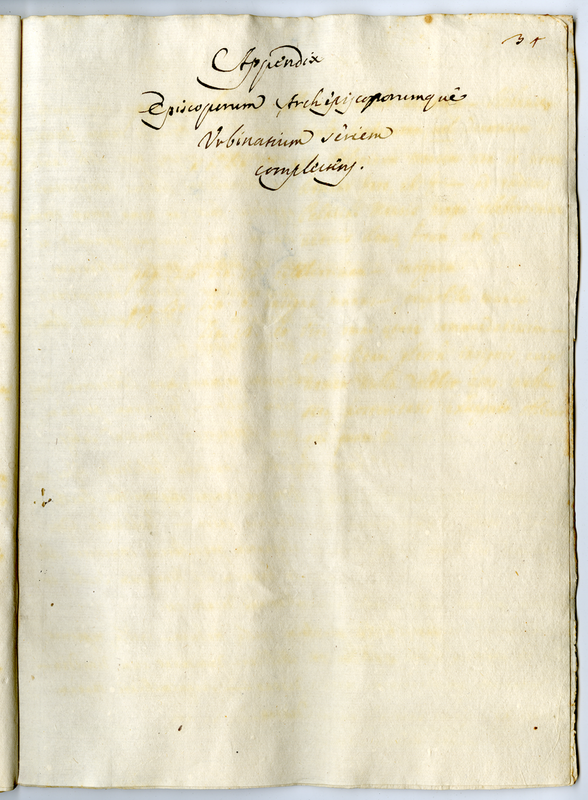 34
Appendix
Episcoporum Archiepiscoporumquè
Vrbinatium sèriem
complectens.